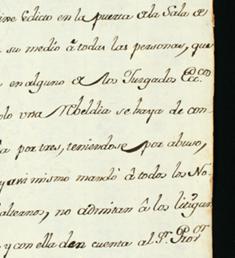 Edicto en la puerta de la Sala de
su medio á todas las personas, que
en alguno de los Juzgados Ecc.cos
solo una Rebeldia se haya de con-
por tres, teniendose por abuso,
y asi mismo mandó á todos los No-
no admitan á los litigan
y con ella den cuenta al S.r Pror